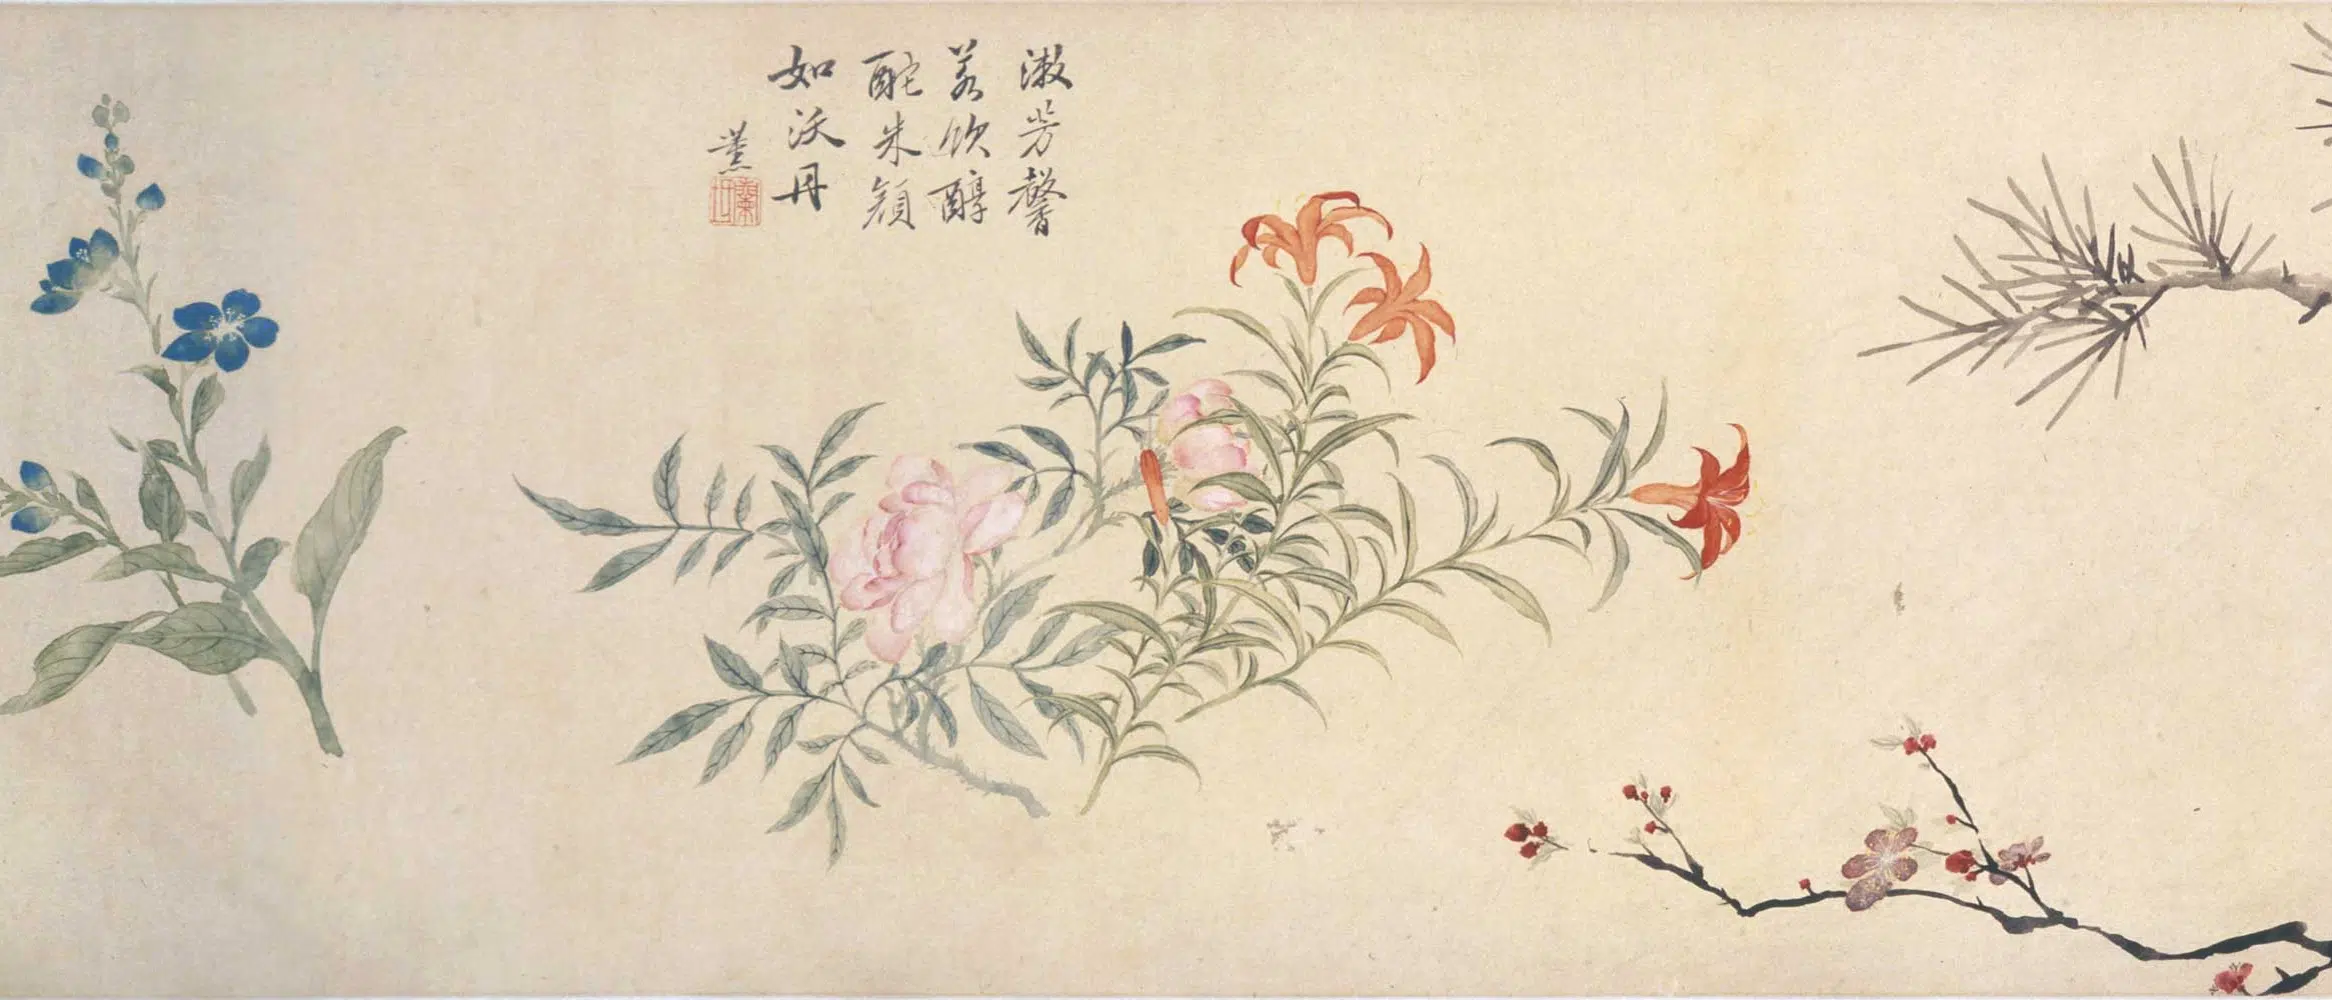 漱芳馨
若飲醇
酡朱顏
如沃丹
薰
蘭坻